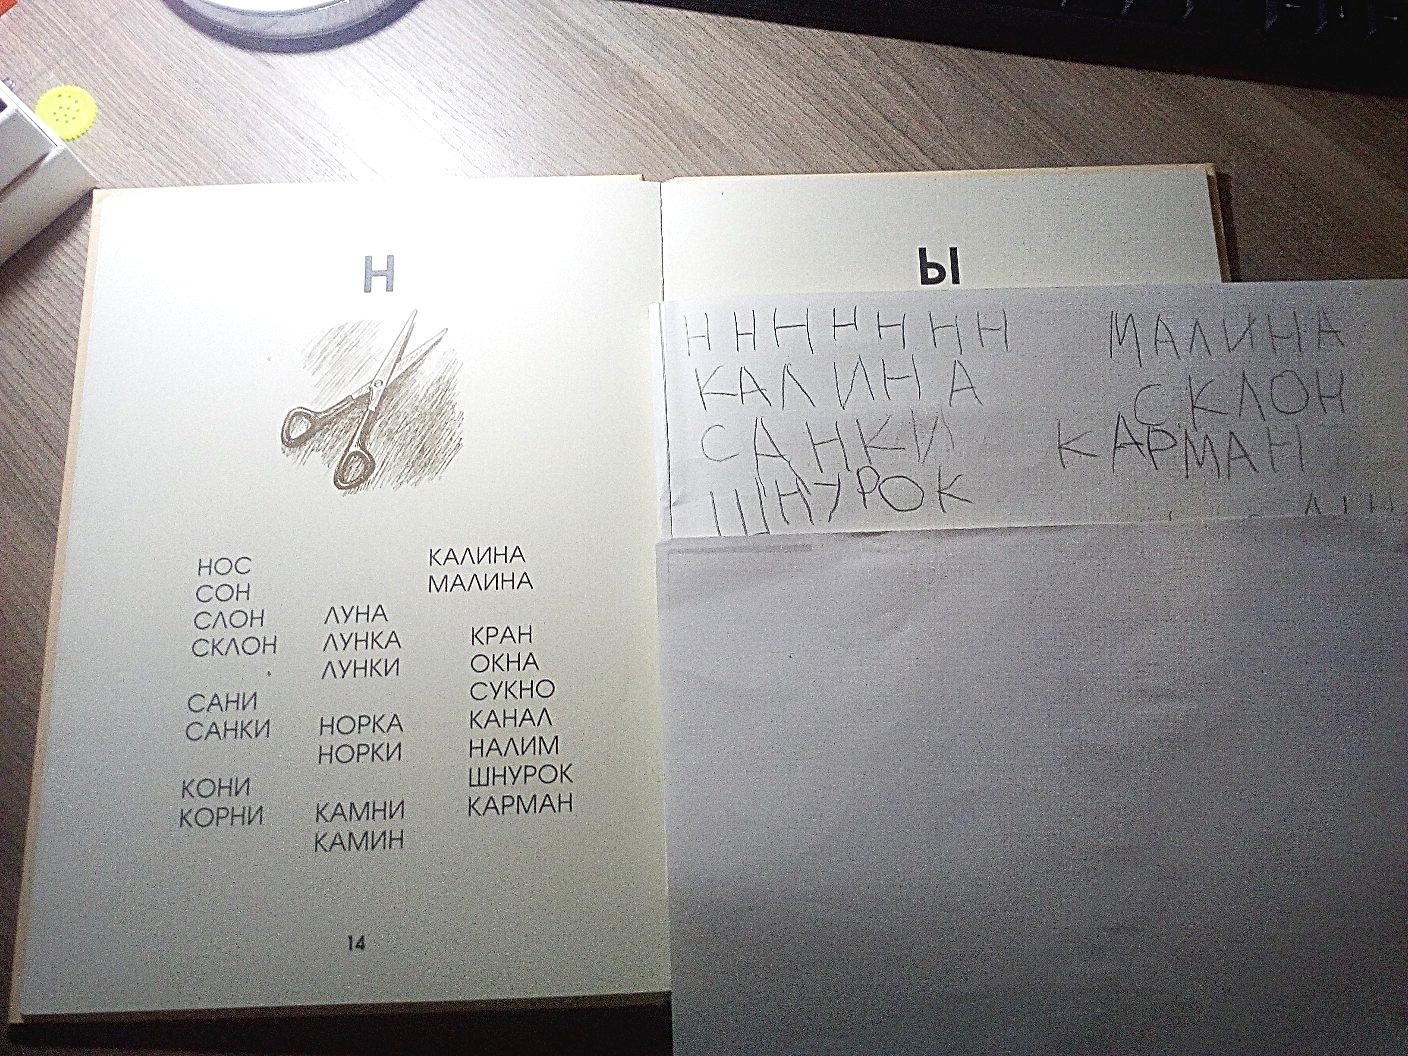 Н
НОС
СОН
СЛОН
СКЛОН
САНИ
САНКИ
КОНИ
КОРНИ
ЛУНА
ЛУНКА
ЛУНКИ
НОРКА
НОРКИ
КАМНИ
КАМИН
КАЛИНА
МАЛИНА
КРАН
ОКНА
СУКНО
КАНАЛ
НАЛИМ
ШНУРОК
КАРМАН
14
Ы
Н Н Н Н Н Н Н
КАЛИНА
САНКИ
ШНУРОК
МАЛИНА
СКЛОН
КАРМАН